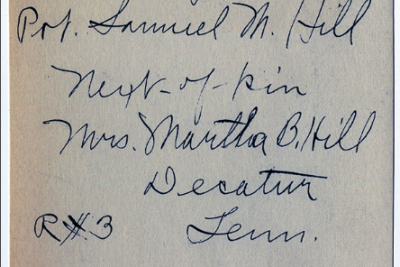 Pvt. Samuel M. Hill
Next-of-kin
Mrs. Martha B. Hill
Decatur
R#3 Tenn.